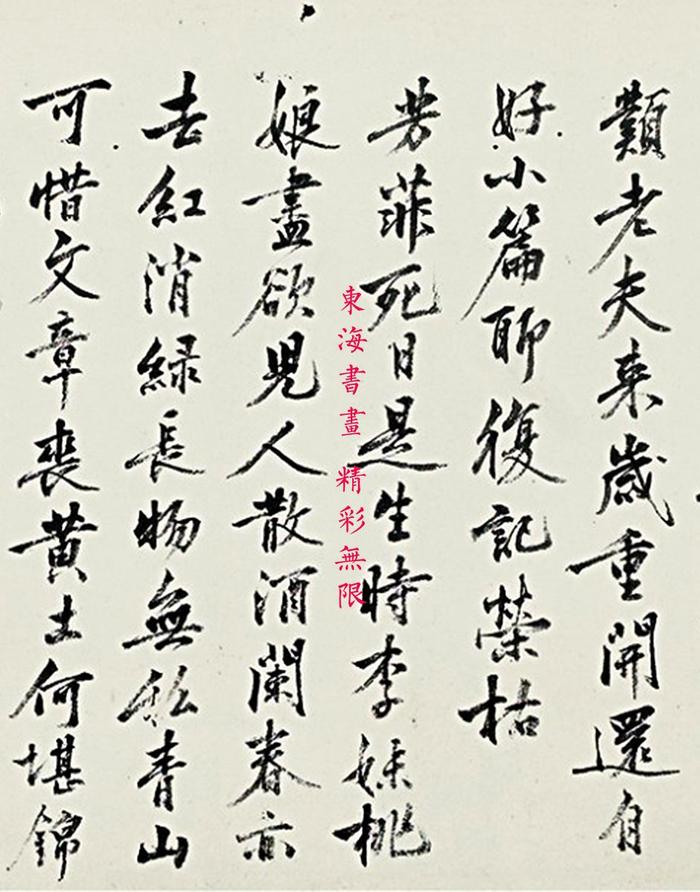 類老夫来歲重開還自
好小篇聊復記榮枯
芳菲死日是生時李妹桃
娘盡欲兒人散酒闌春亦
去紅消緑長物無私青山
可惜文章喪黄土何堪錦
東海書畫 精彩無限